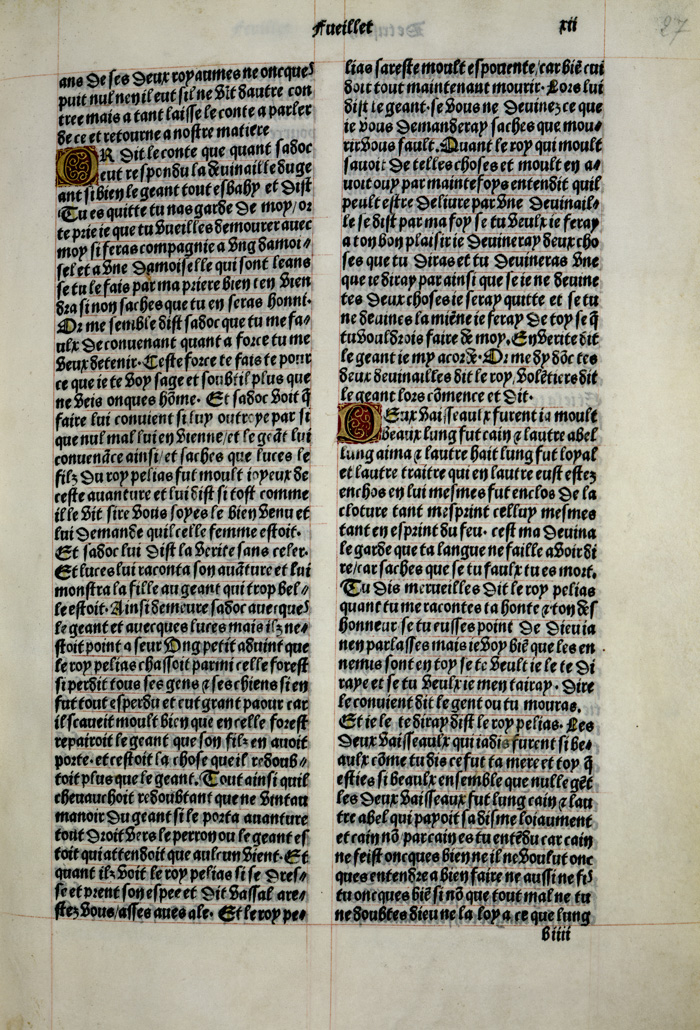 Fueillet
xii
27
ans de ses deux royaumes ne oncques
puit nul neny il eut sil ne dit dautre con
tree mais a tant laisse le conte a parler
de ce et retourne a nostre matiere
OR dit le conte que quant sadoc
eut respondu la deuinaille du ge
ant si bien le geant tout esbahy et dist
Tu es quitte tu nas garde de moy/or
te prie ie que tu vueilles demourer auec
moy si feras compagnie a vng damoi⸗
sel et a vne damoiselle qui sont leans
se tu le fais par ma priere bien ten vien
dra si non saches que tu en seras honni.
Or me semble dist sadoc que tu me fa⸗
ulx de conuenant quant a force tu me
veux detenir. Ceste force te fais te pour
ce que ie te voy sage et soubtil plus que
ne veis onques hōme. Et sadoc voit q̄
faire lui conuient si luy outroye par si
que nul mal lui en vienne/et le geāt lui
conuenāce ainsi/et saches que luces le
filz du roy pelias fut moult ioyeux de
ceste auanture et lui dist si tost comme
il le vit sire vous soyes le bien venu et
lui demande quil celle femme estoit.
Et sadoc lui dist la verite sans celer.
Et luces lui raconta son auāture et lui
monstra la fille au geant qui trop bel⸗
le estoit. Ainsi demeure sadoc auecques
le geant et auecques luces mais ilz ne⸗
stoit point a seur Ong petit aduint que
le roy pelias chassoit parmi celle forest
si perdit tous ses gens ⁊ ses chiens si en
fut tout esperdu et cut grant paour car
il scaueit moult bien que en celle forest
repairoit le geant que son filz en auoit
porte. et cestoit la chose que il redoub⸗
toit plus que le geant. Tout ainsi quil
cheuauchoit redoubtant que ne vintau
manoir du geant si le porta auanture
tout droit vers le perron ou le geant es
toit qui attendoit que aulcun vient. Et
quant ilz voit le roy pelias si se dres⸗
se et prent son espee et dit vassal are⸗
stez vous/asses aues ale. Et le roy pe⸗
lias sareste moult espouente/car biē cui
doit tout maintenant mourir. Lors lui
dist le geant. se vous ne deuinez ce que
ie vous demanderay saches que mou⸗
rir vous fault. Quant le roy qui moult
sauoit de telles choses et moult en a⸗
uoit ouy par maintefoys entendit quil
peult estre deliure par vne deuinail⸗
le se dist par ma foy se tu veulx ie feray
a ton bon plaisir ie deuineray deux cho
ses que tu diras et tu deuineras vne
que ie diray par ainsi que se ie ne deuine
tes deux choses ie seray quitte et se tu
ne deuines la miēne ie feray de toy se q̄
tu vouldrois faire de moy. En verite dit
le geant ie my acorde. Or me dy dōc tes
deux deuinailles dit le roy/volētiers dit
le geant lors cōmence et dit.
DEux vaisseaulx furent ia moult
beaux lung fut cain ⁊ lautre abel
lung aima ⁊ lautre hait lung fut loyal
et lautre traitre qui en lautre eust estez
enchos en lui mesmes fut enclos de la
cloture tant mesprint celluy mesmes
tant en esprint du feu. cest ma deuina
le garde que ta langue ne faille a voir di
re/car saches que se tu faulx tu es mort.
Tu dis merueilles dit le roy pelias
quant tu me racontes ta honte ⁊ ton des
honneur se tu eusses point de dieu ia
nen parlasses mais ie voy biē que les en
nemis sont en toy se te veult ie le te di
raye et se tu veulx ie men tairay. Dire
le conuient dit le gent ou tu mouras.
Et ie le te diray dist le roy pelias. Les
deux vaisseaulx qui iadis furent si be⸗
aulx cōme tu dis ce fut ta mere et toy q̄
esties si beaulx ensemble que nulle gēt
les deux vaisseaux fut lung cain ⁊ lau
tre abel qui papoit sa disme loiaument
et cain nō par cain es tu entēdu car cain
ne feist oncques bien ne il ne voulut onc
ques entendre a bien faire ne aussi ne fis
tu oncques biē si nō que tout mal ne tu
ne doubtes dieu ne la loy a ce que lung
biiii